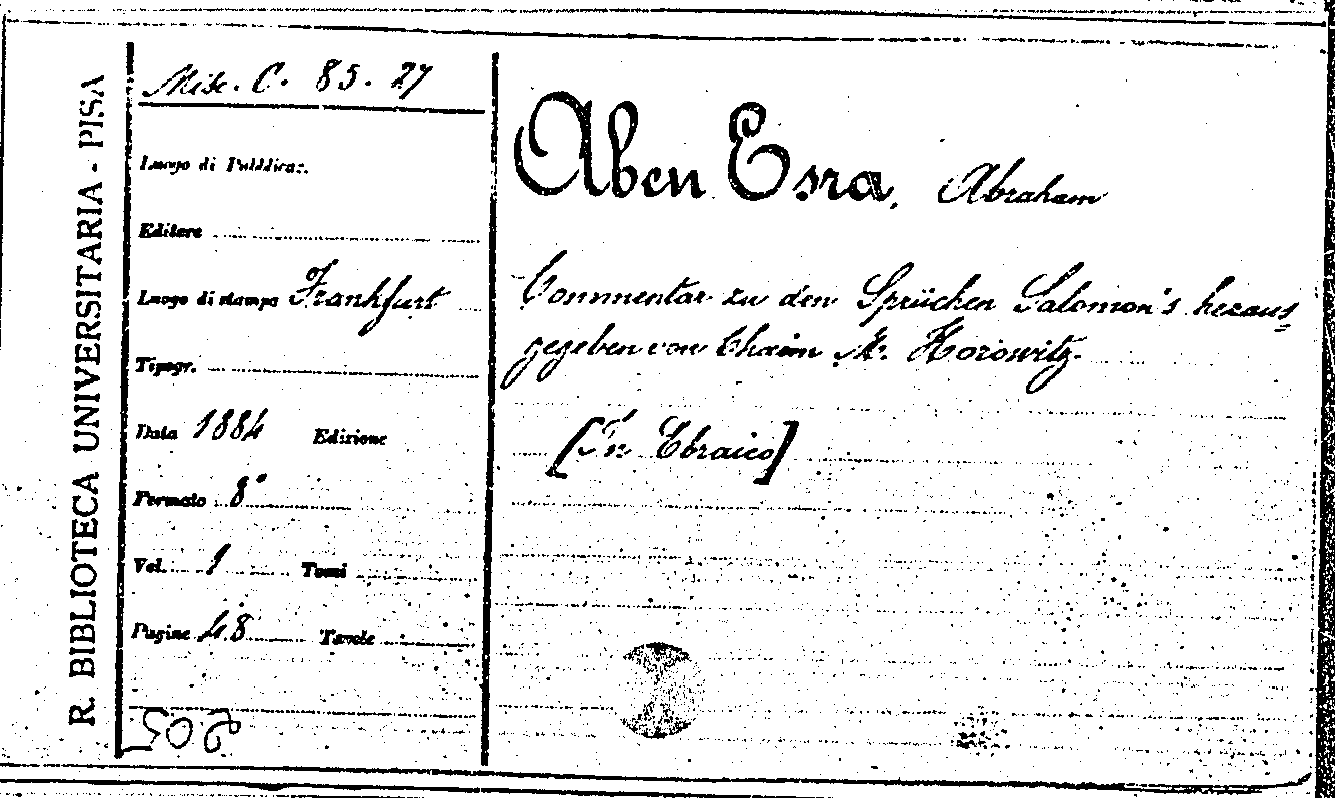 R. BIBLIOTECA UNIVERSITARIA - PISA
Misc. C. 85. 27
Luogo di Pubblicaz.
Editore
Luogo di stampa Frankfurt
Tipogr.
Data 1884 Edizione
Formato 8°
Vol. 1 Tomi
Pagine 48 Tavole
Aben Esra, Abraham
Commentar zu den Sprüchen Salomon's heraus=
gegeben von Chaim M. Horowitz.
[In Ebraico]